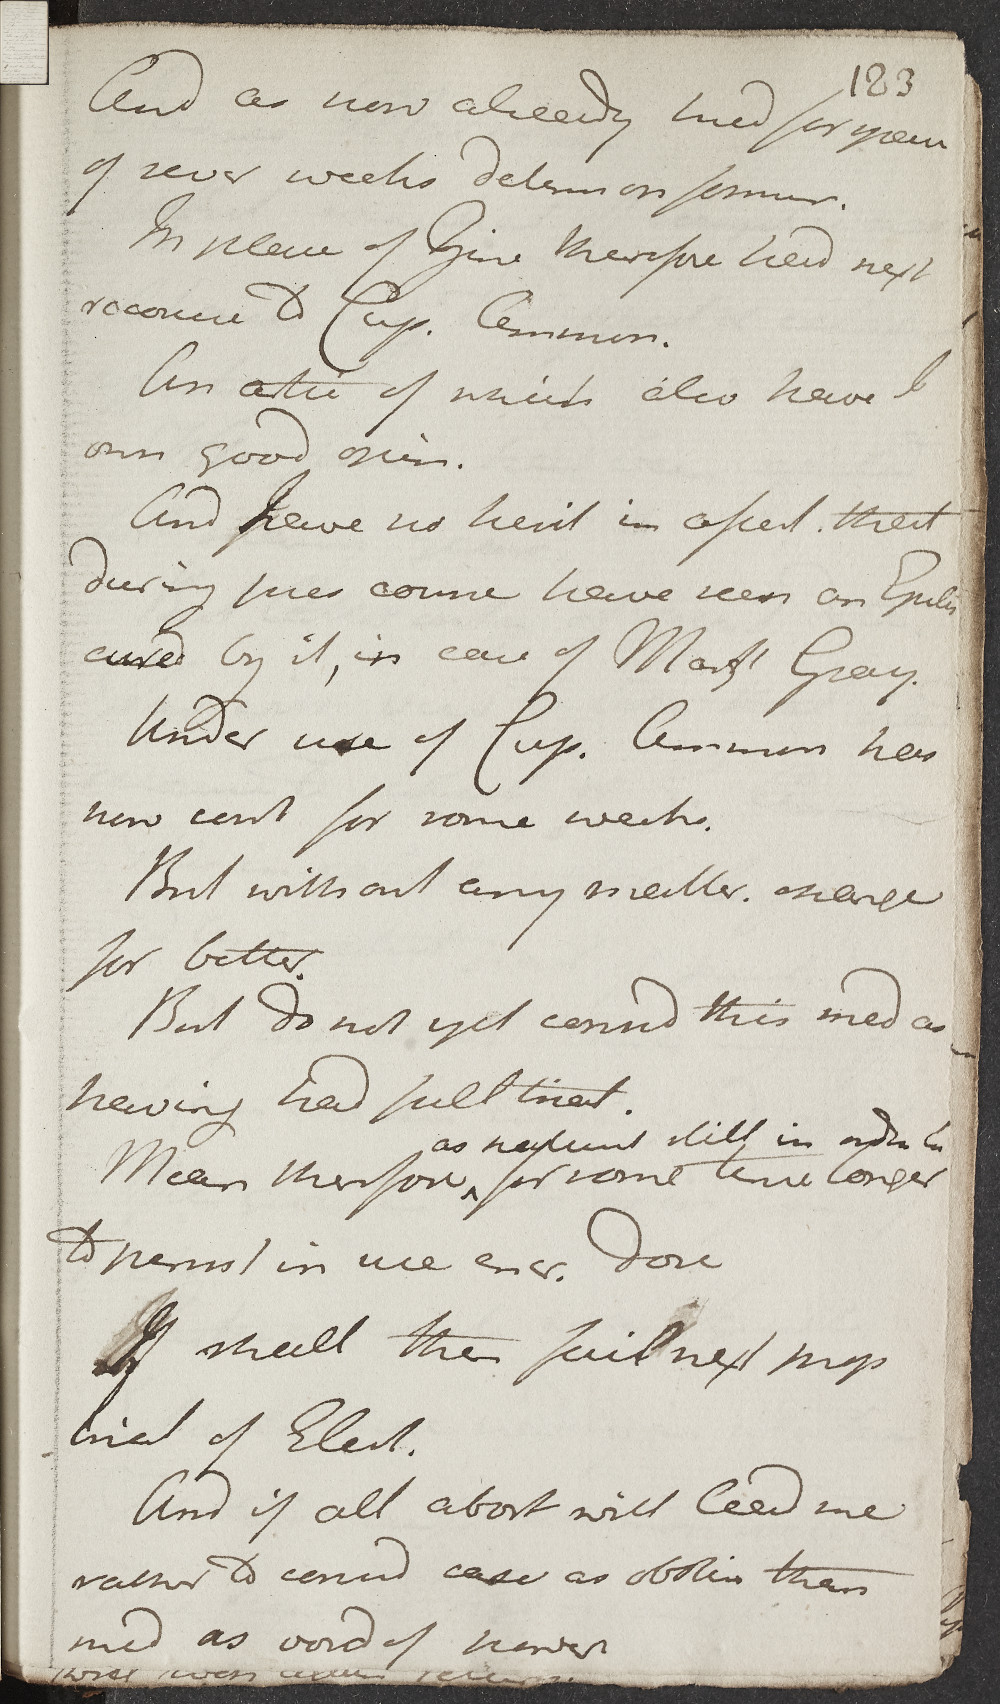 183
And as now already tried for space
of sever weeks determ on former.
In place of Zinc therefore had next
recourse to Cup. Ammon.
An artic of which also have I
own good opin.
And have no hesit in assert. that
during pres course have seen an Epilep
cured by it, in case of Mart Gray.
Under use of Cup. Ammon has
now cont for some weeks.
But without any matter. change
for better.
But do not yet consid this med as
having had full trial.
as still in order to
Mean therefore for some time longer
to persist in use encr. dose
If shall then fail next prop
trial of Elect.
And if all abort will lead me
rather to consid case as obstin than
med as void of power